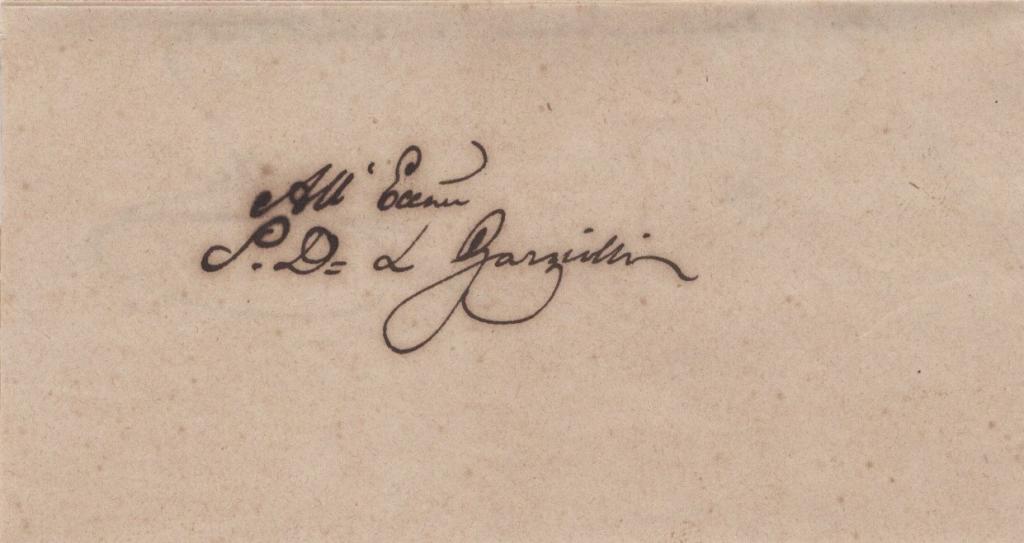 All' Eccmo
S. D= L Garzilli